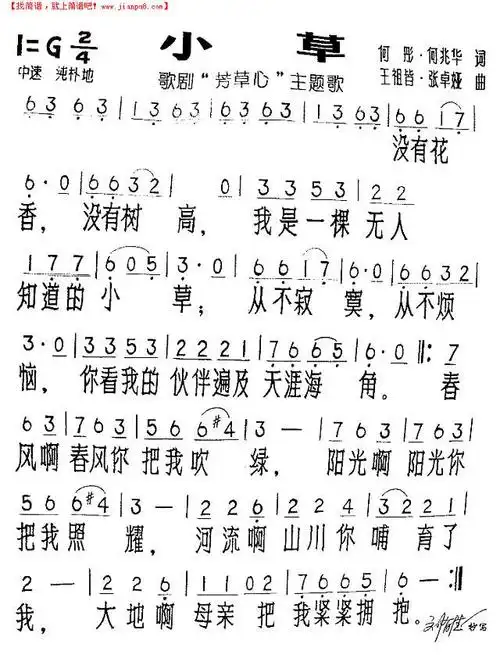 【找简谱，就上简谱吧！】
www.jianpu8.com
1=G 2/4 小草 何彤·何兆华 词
中速 纯朴地 歌剧“芳草心”主题歌 王祖皆·张卓娅 曲
63 63 | 63 63 | 63 63 | 63 63 | 66 17 |
没有花
6·0 | 6632 | 3·0 | 3353 | 22
香，没有树 高，我是一棵 无人
177 | 605 | 3·0 | 6617 | 6·0 | 6622
知道的小 草；从不寂 寞，从不烦
3·0 | 3353 | 2221 | 7665 | 6·0 :‖: 7
恼，你看我的 伙伴遍及 天涯海 角。春
63 | 763 | 566#4 | 3 — | 763 | 763
风啊 春风你 把我吹 绿，阳光啊 阳光你
566#4 | 3 — | 226 | 224 | 3221
把我照 耀，河流啊 山川你 哺育了
2 — | 226 | 1102 | 7665 | 6 — :‖
我，大地啊 母亲把 我紧紧拥 抱。